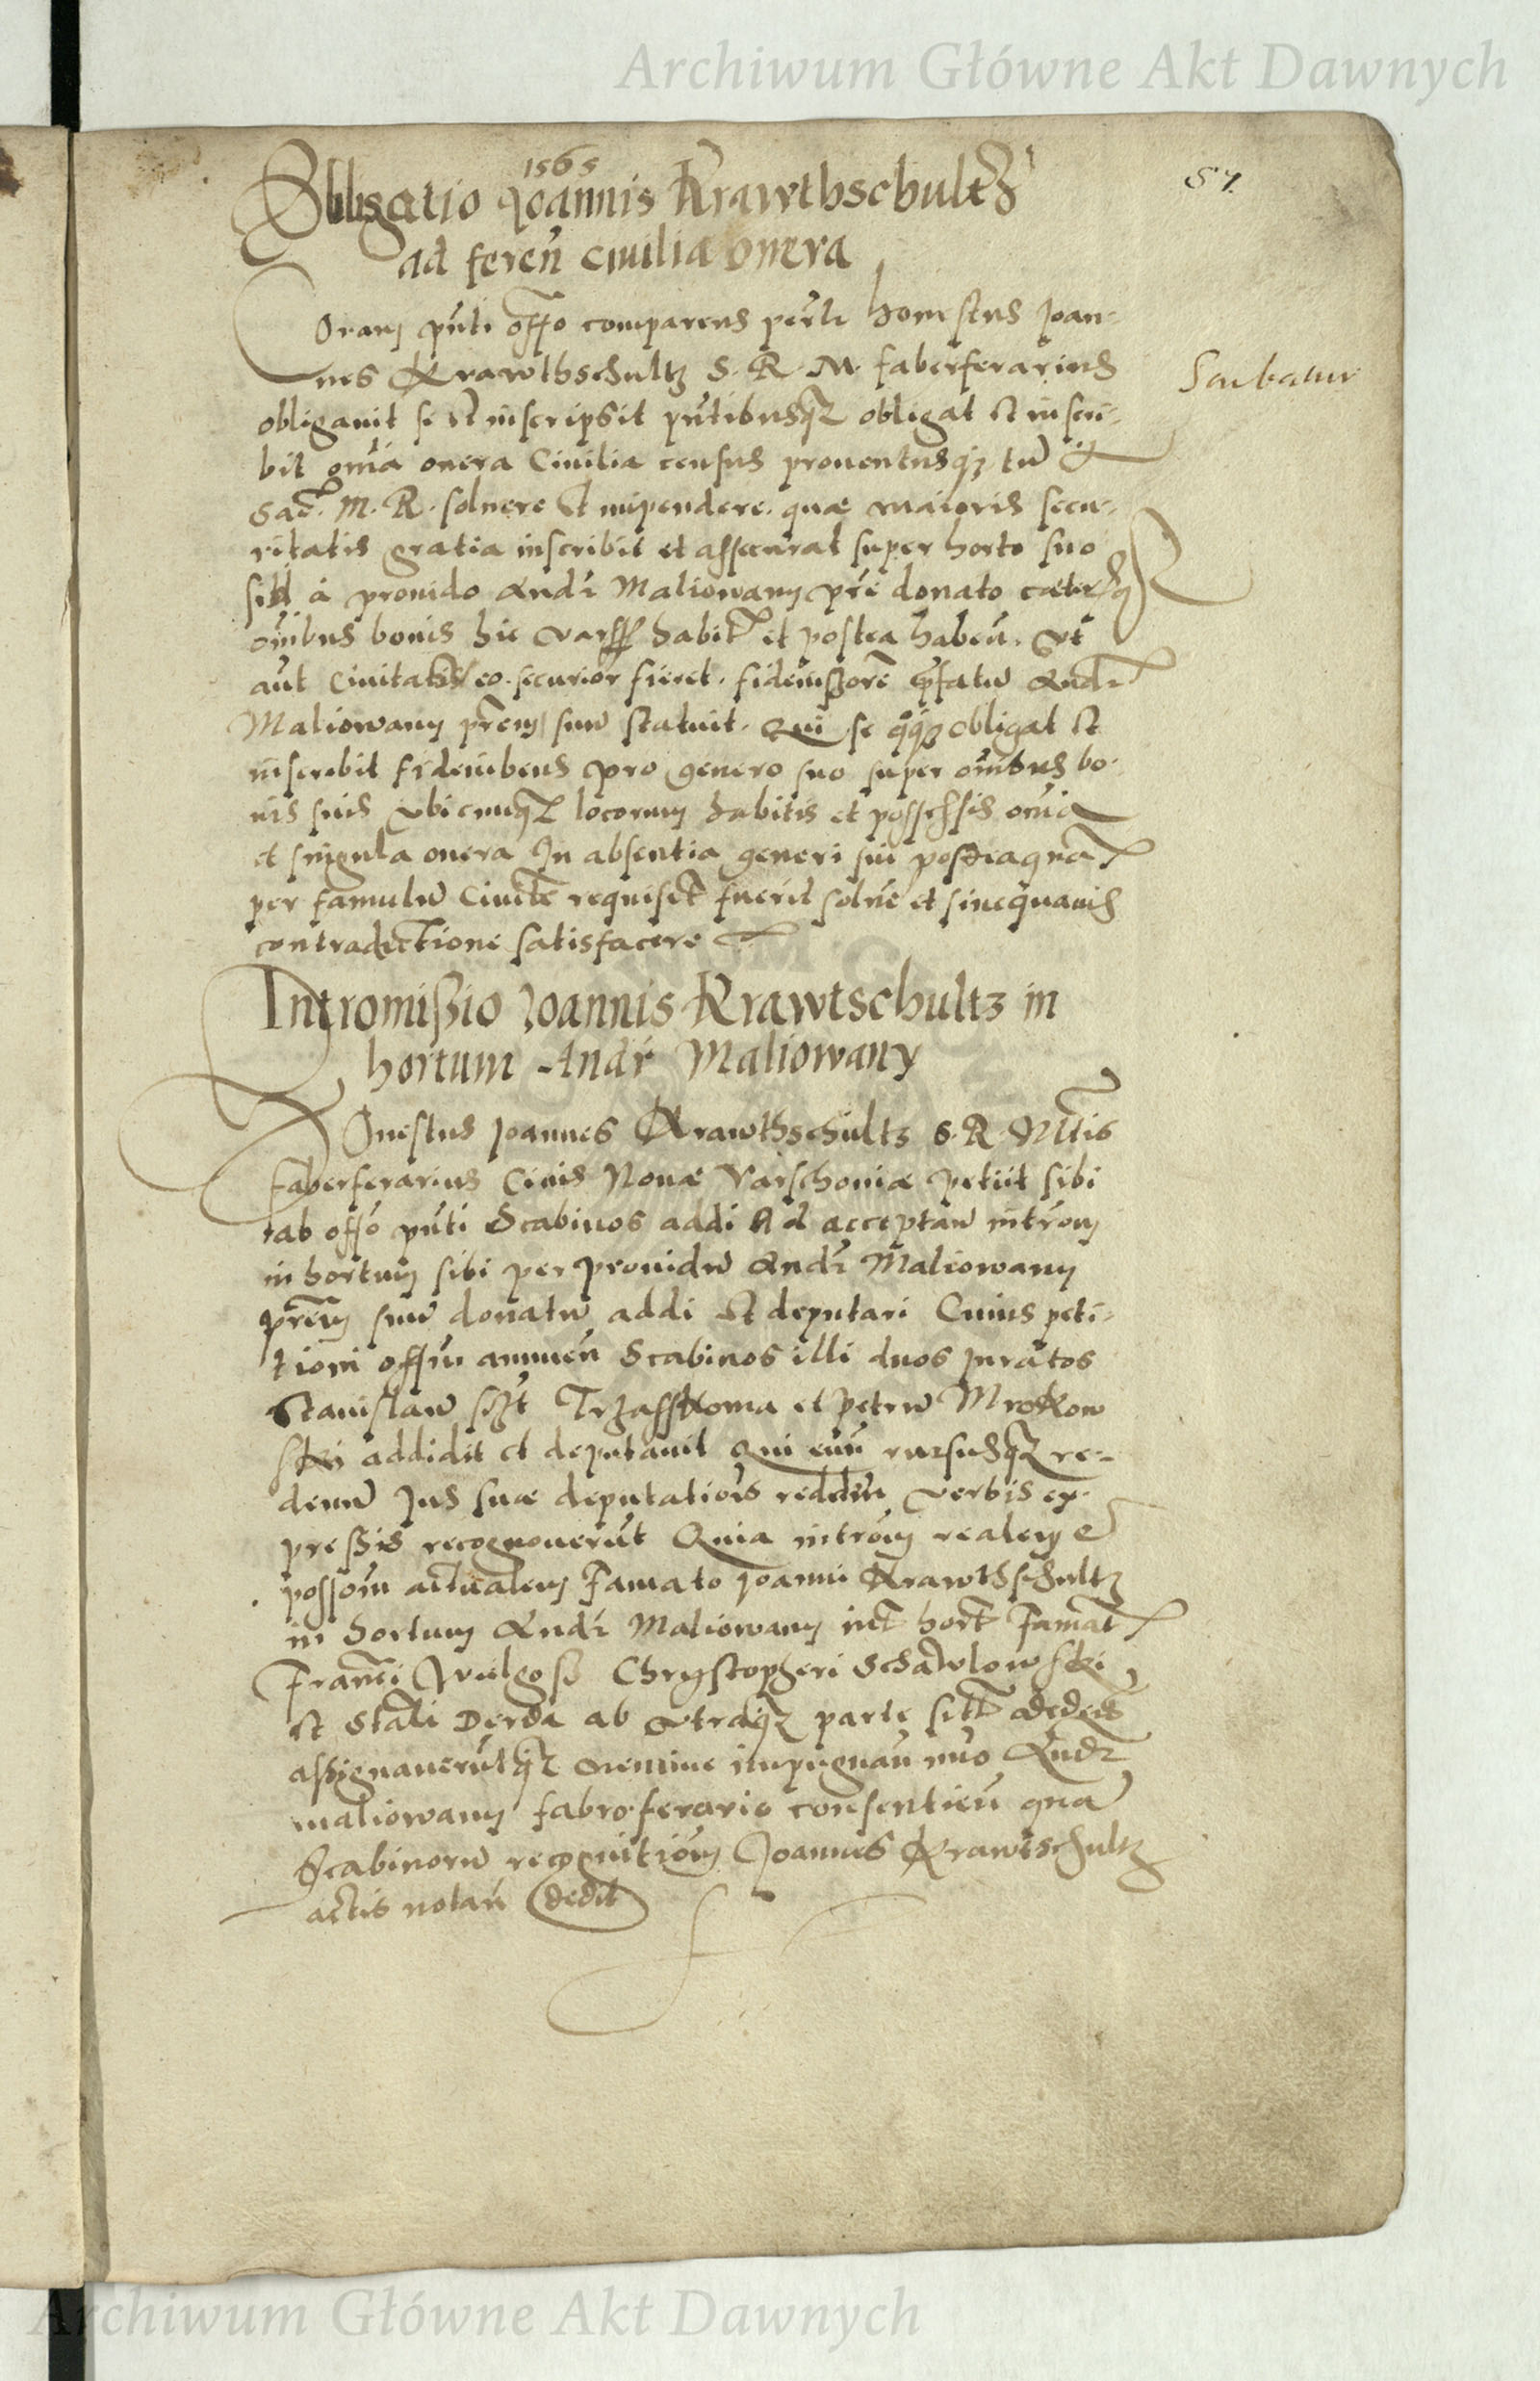 Archiwum Główne Akt Dawnych
1565
57.
Obligatio Joannis Krawthschultz
ad feren̄ ciuilia onera
Coram pn̄ti offo comparens per̄lr honestus Joan-
nes Krawthschultz S. R. M. faberferarius
Scribatur
obligauit se et inscripsit pn̄tibusqz obligat et inscri-
bit om̄ia onera Ciuilia census prouentusqz tum
Sac. M. R. soluere et inpendere. quae maioris secu-
ritatis gratia inscribit et assecurat super horto suo
sibi à prouido Andr Maliowany pr̄e donato caeterisqz
om̄ibus bonis hic Varss habit et postea haben̄. Vt
aut Ciuitas eo securior fieret. fideiussorē p̄fatum Andr
Maliowany pr̄em suum statuit. Qui se qqz obligat et
inscribit fideiubens pro genero suo super om̄ibus bo-
nis suis vbicunqz locorum habitis et possessis om̄ia
et singula onera In absentia generi sui posteaquam
per famulum Ciuilē requisit fuerit soluē et sine quauis
contradictione satisfacere
Intromissio Joannis Krawtschultz in
hortum Andr Maliowany
Honestus Joannes Krawthschultz S. R. Mtis
faberferarius Ciuis Nouae Varschouiae petiit sibi
ab offo pn̄ti Scabinos addi Ad acceptam introm
in hortum sibi per prouidum Andr Maliowany
pr̄em suum donatum addi et deputari Cuius peti-
tioni offm annuen̄ Scabinos illi duos Juratos
Stanislaum Trzasskoma et Petrum Mrokow
ski addidit et deputauit Qui eun̄ rursusqz re-
deun̄ Jus suae deputationis redden̄ verbis ex-
pressis recognouerūt Quia introm realem et
possom actualem Famato Joanni Krawthschultz
in hortum Andr Maliowany int hort Famat
Franci Wulgoss Chrystopheri Schawlowski
et Stali Derda ab vtraqz parte sit dederūt
assignauerūtqz nemine impugnan̄ imo Andr
maliowany fabro ferario consentien̄ quam
Scabinorum recognitiōm Joannes Krawtschultz
actis notari dedit
Archiwum Główne Akt Dawnych